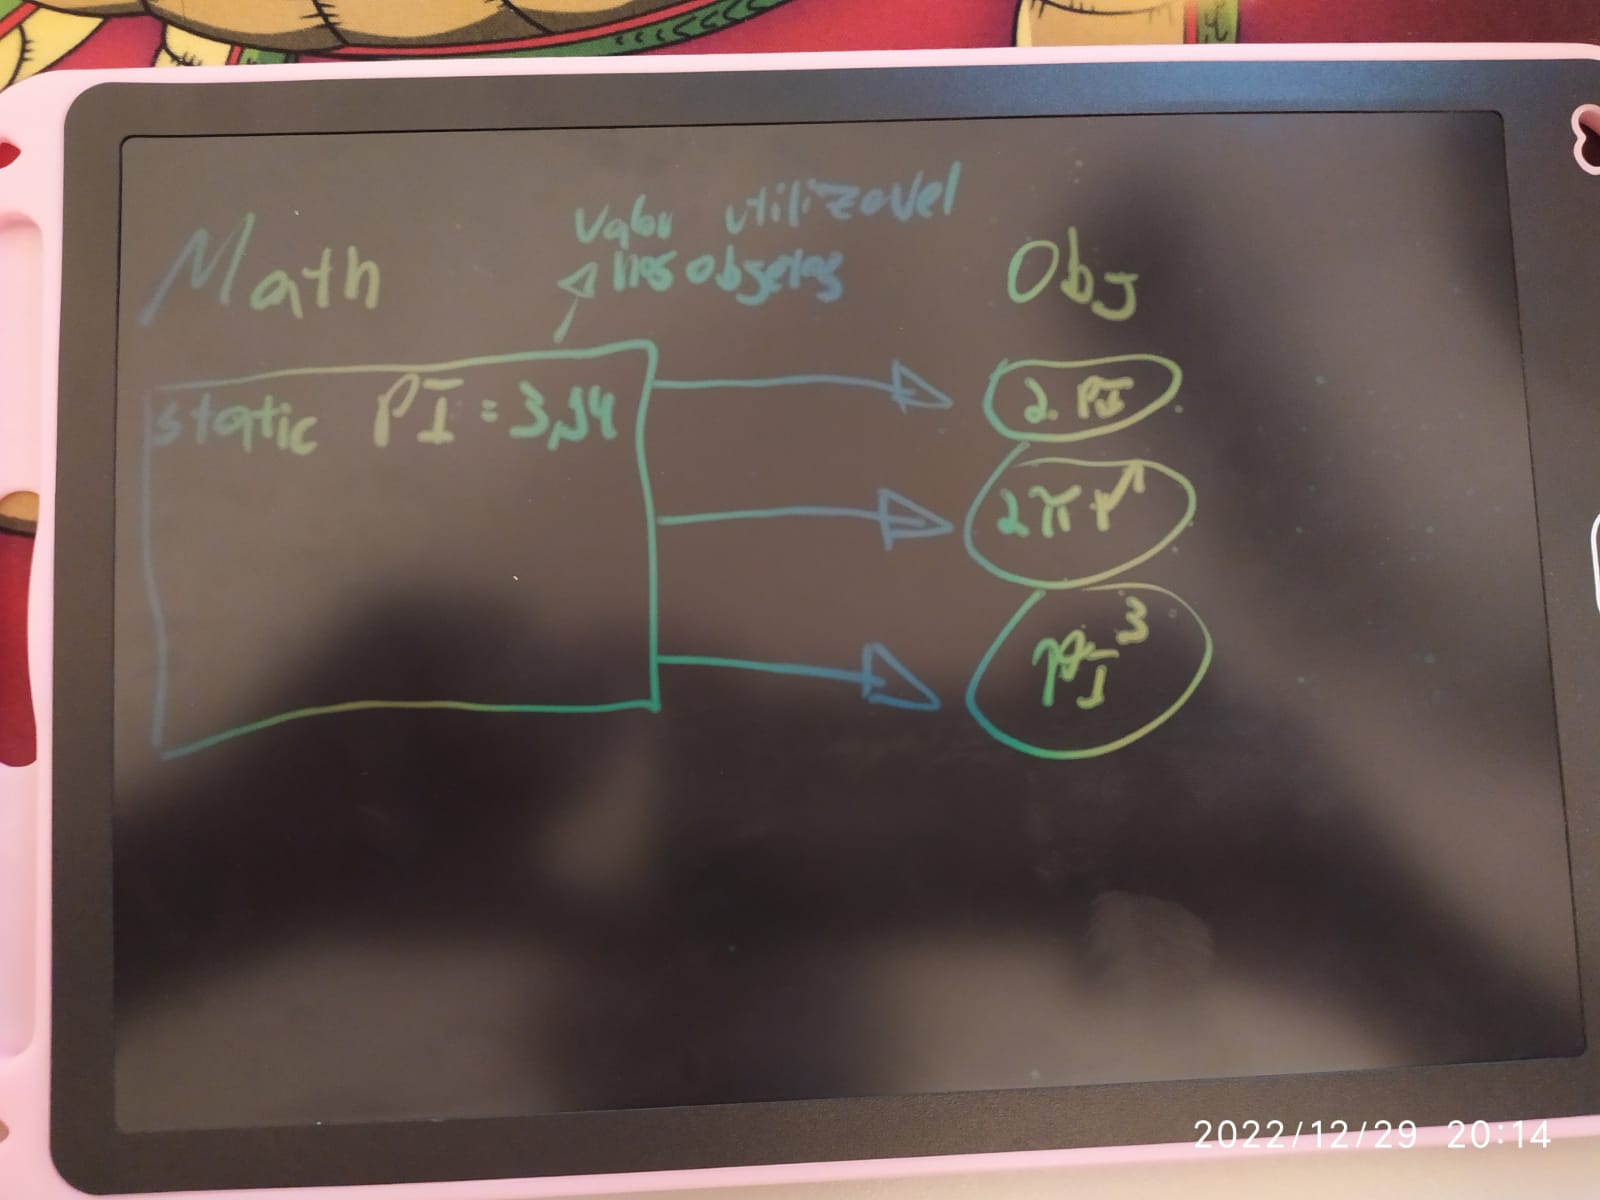 Math
valor utilizavel
nos objetos
Obj
static PI = 3,14
2. PI
2πr
PI³
2022/12/29 20:14